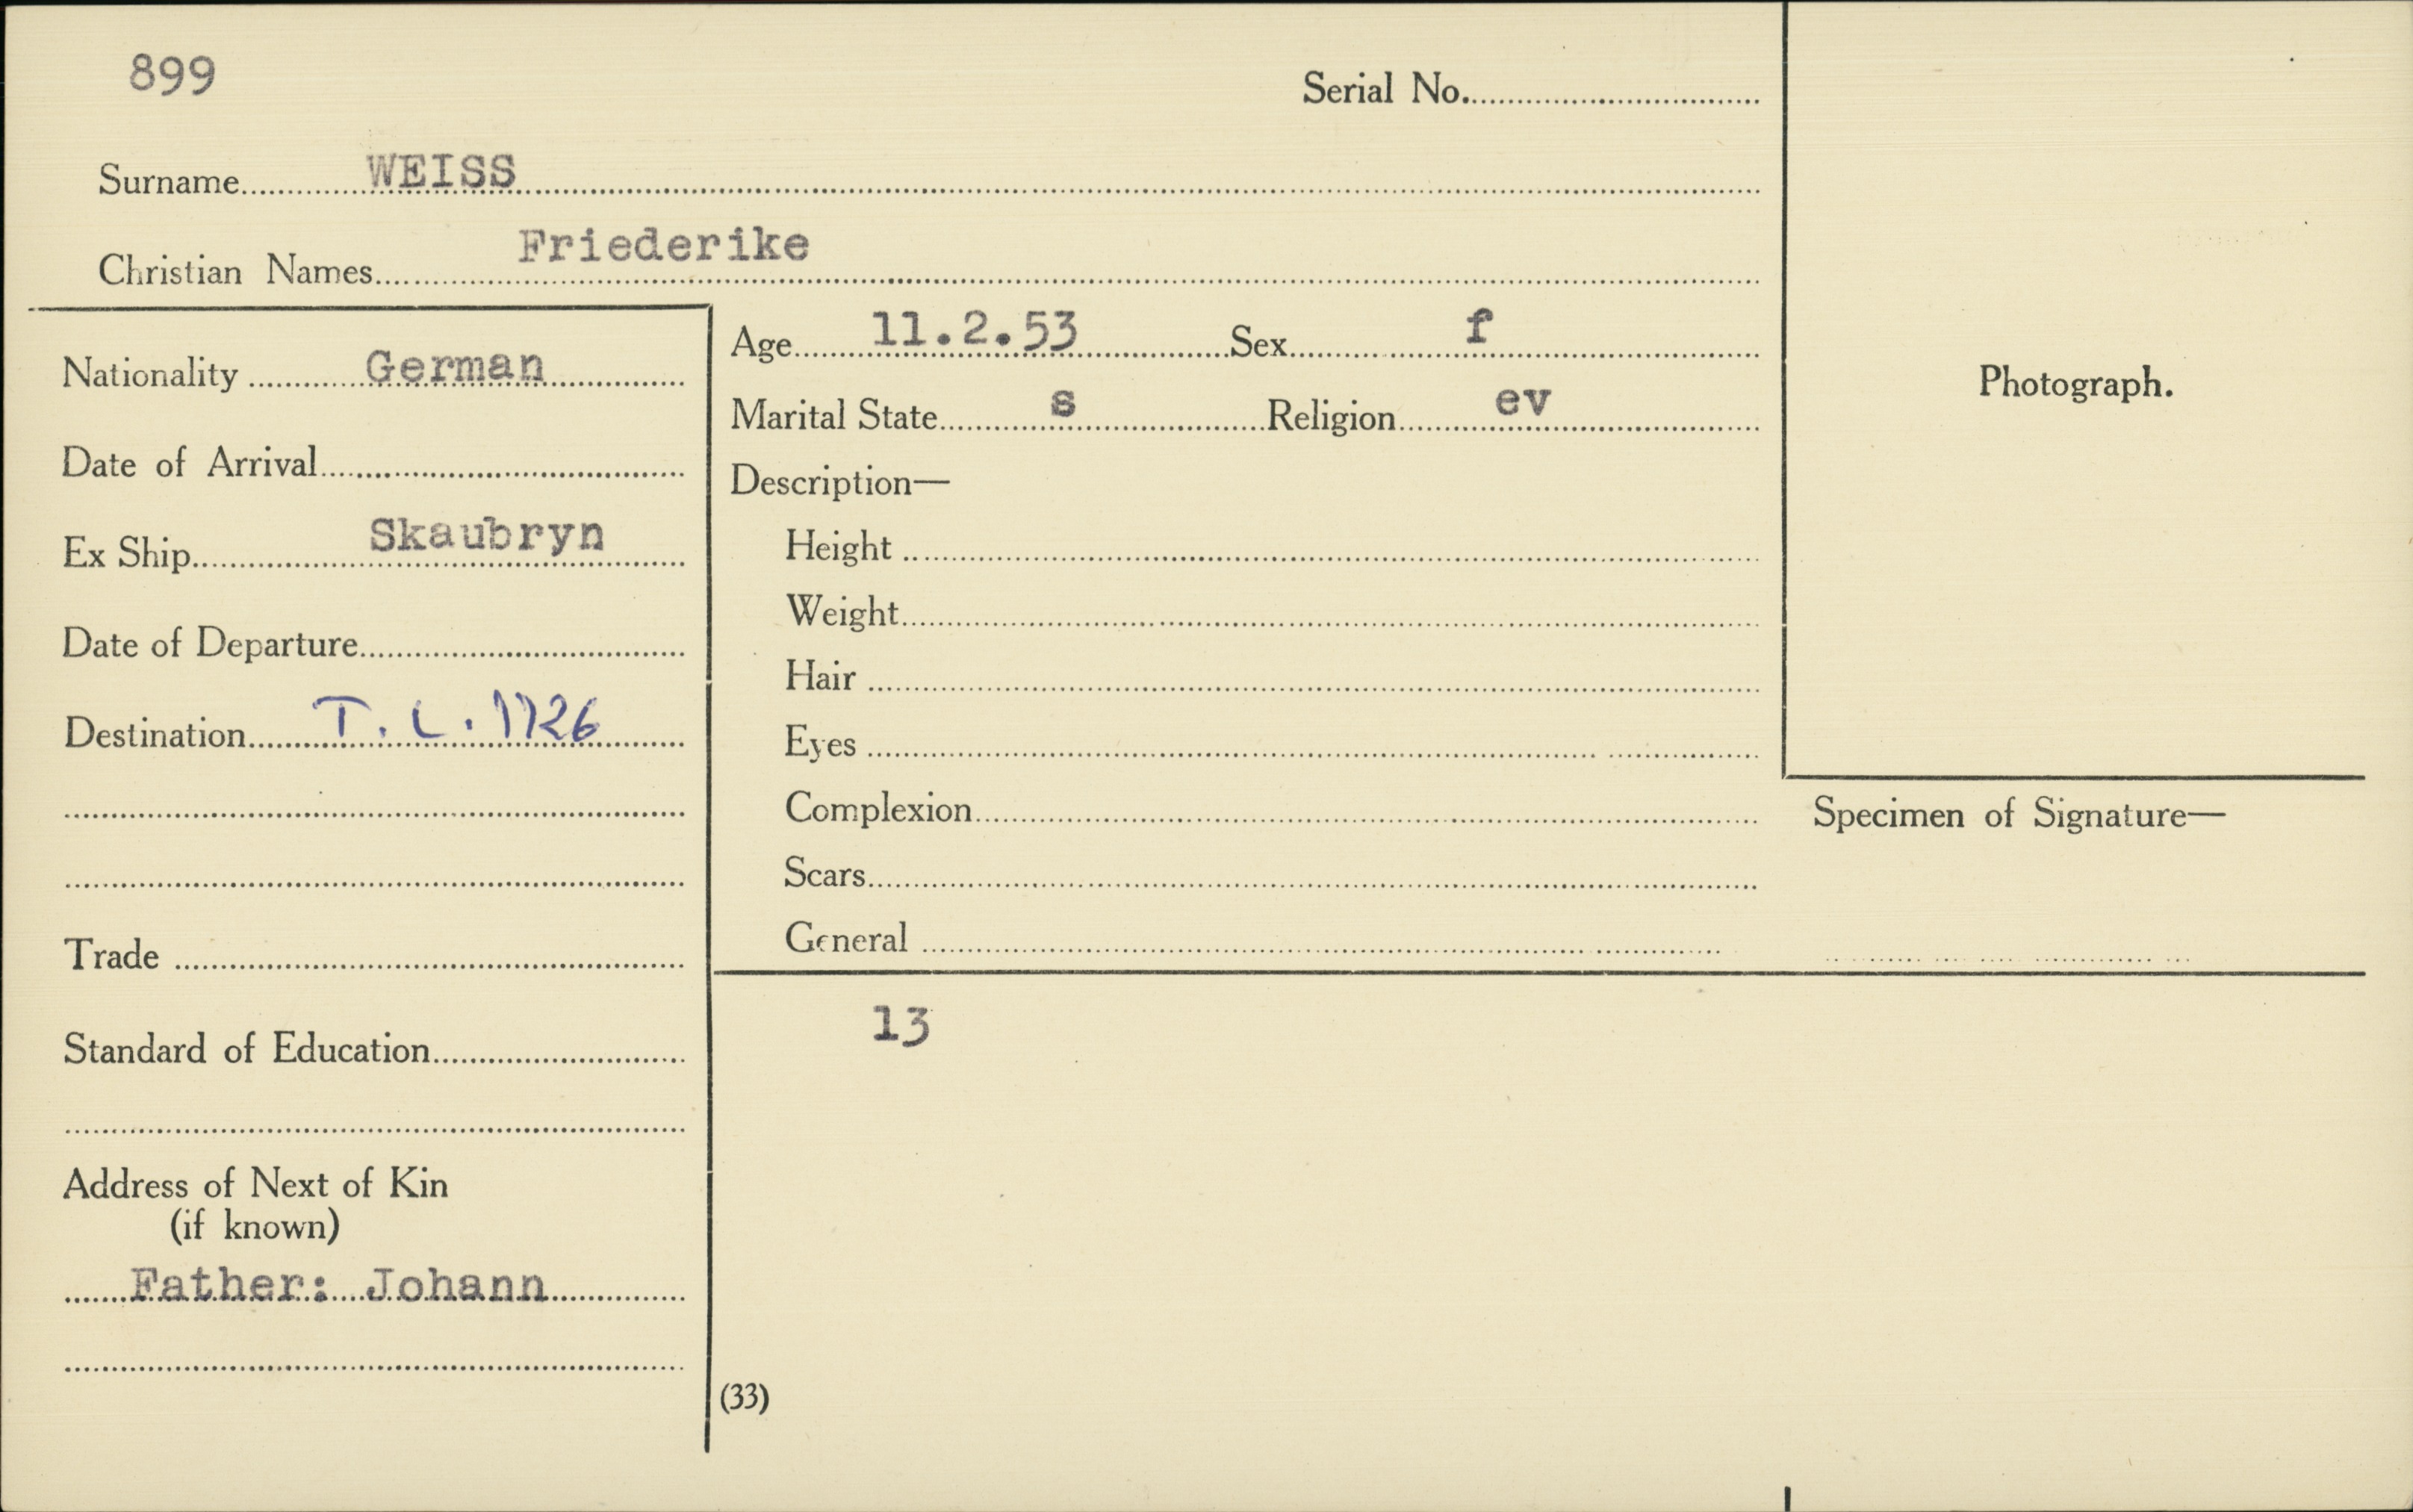 899
Serial No.
Surname WEISS
Christian Names Friederike
Nationality German
Date of Arrival
Ex Ship Skaubryn
Date of Departure
Destination T. L. 1726
Trade
Standard of Education
Address of Next of Kin
(if known)
Father: Johann
Age 11.2.53 Sex f
Marital State s Religion ev
Description—
Height
Weight
Hair
Eyes
Complexion
Scars
General
13
(33)
Photograph.
Specimen of Signature—